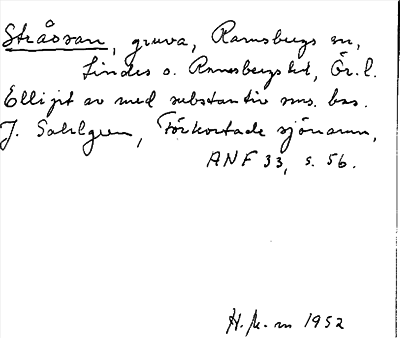 Stråssan, gruva, Ramsbergs sn,
Lindes o. Ramsbergs hd, Ör. l.
Ellipt av med substantiv ss. bas.
J. Sahlgren, Förkortade sjönamn,
ANF 33, s. 56.
1952